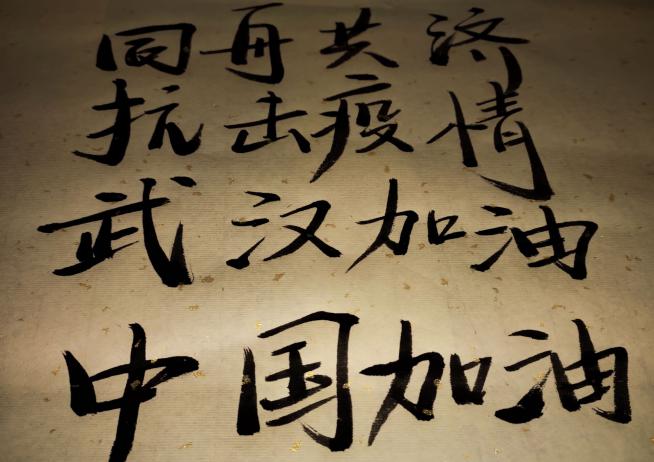 同舟共济
抗击疫情
武汉加油
中国加油